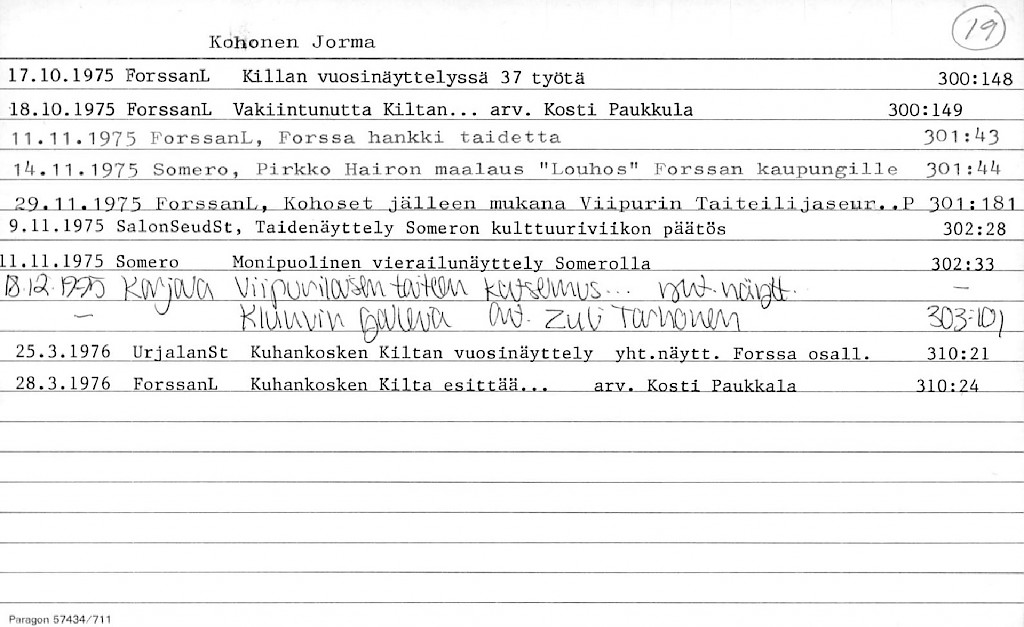 19
Kohonen Jorma
17.10.1975 ForssanL Killan vuosinäyttelyssä 37 työtä 300:148
18.10.1975 ForssanL Vakiintunutta Kiltan... arv. Kosti Paukkula 300:149
11.11.1975 ForssanL, Forssa hankki taidetta 301:43
14.11.1975 Somero, Pirkko Hairon maalaus "Louhos" Forssan kaupungille 301:44
29.11.1975 ForssanL, Kohoset jälleen mukana Viipurin Taiteilijaseur..P 301:181
9.11.1975 SalonSeudSt, Taidenäyttely Someron kulttuuriviikon päätös 302:28
11.11.1975 Somero Monipuolinen vierailunäyttely Somerolla 302:33
18.12.1975 Karjala Viipurilaisen taiteen katselmus... yht.näytt. –
– Kluuvin Galleria arv. Zuli Tarhonen 303:101
25.3.1976 UrjalanSt Kuhankosken Kiltan vuosinäyttely yht.näytt. Forssa osall. 310:21
28.3.1976 ForssanL Kuhankosken Kilta esittää... arv. Kosti Paukkala 310:24
Paragon 57434/711